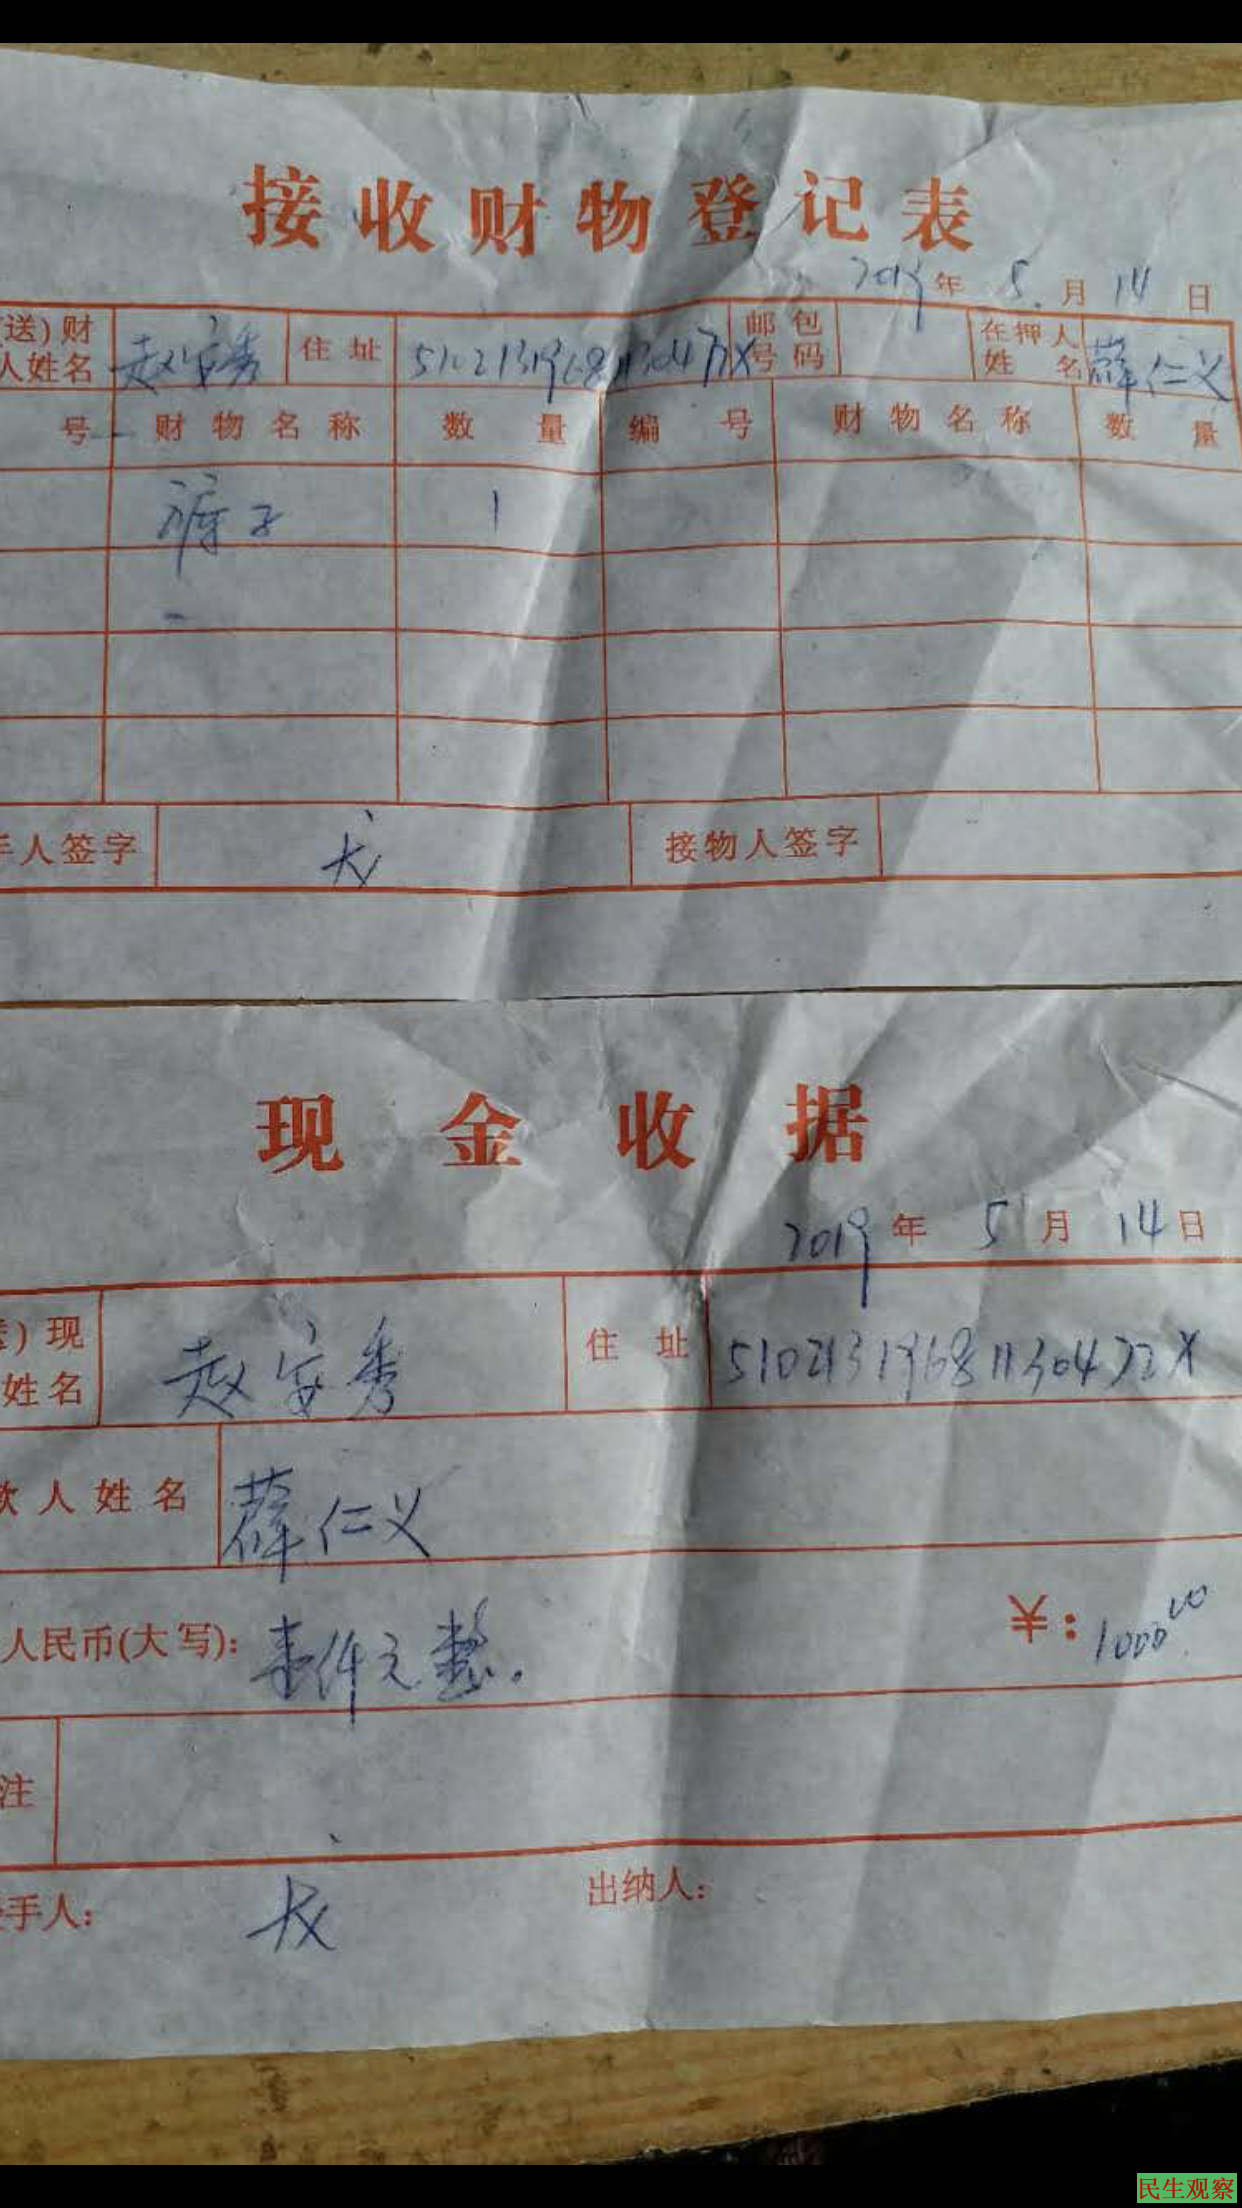 接收财物登记表
2019年 5月 14日
送)财 赵安秀 住址 51021319681130472X 邮包 在押人 薛仁义
人姓名 号码 姓名
号 财物名称 数量 编号 财物名称 数量
裤子 1
手人签字 接物人签字
现金收据
2019年 5月 14日
)现 赵安秀 住址 51021319681130472X
姓名
款人姓名 薛仁义
人民币(大写): 壹仟元整. ¥: 1000.00
注
手人: 出纳人:
民生观察